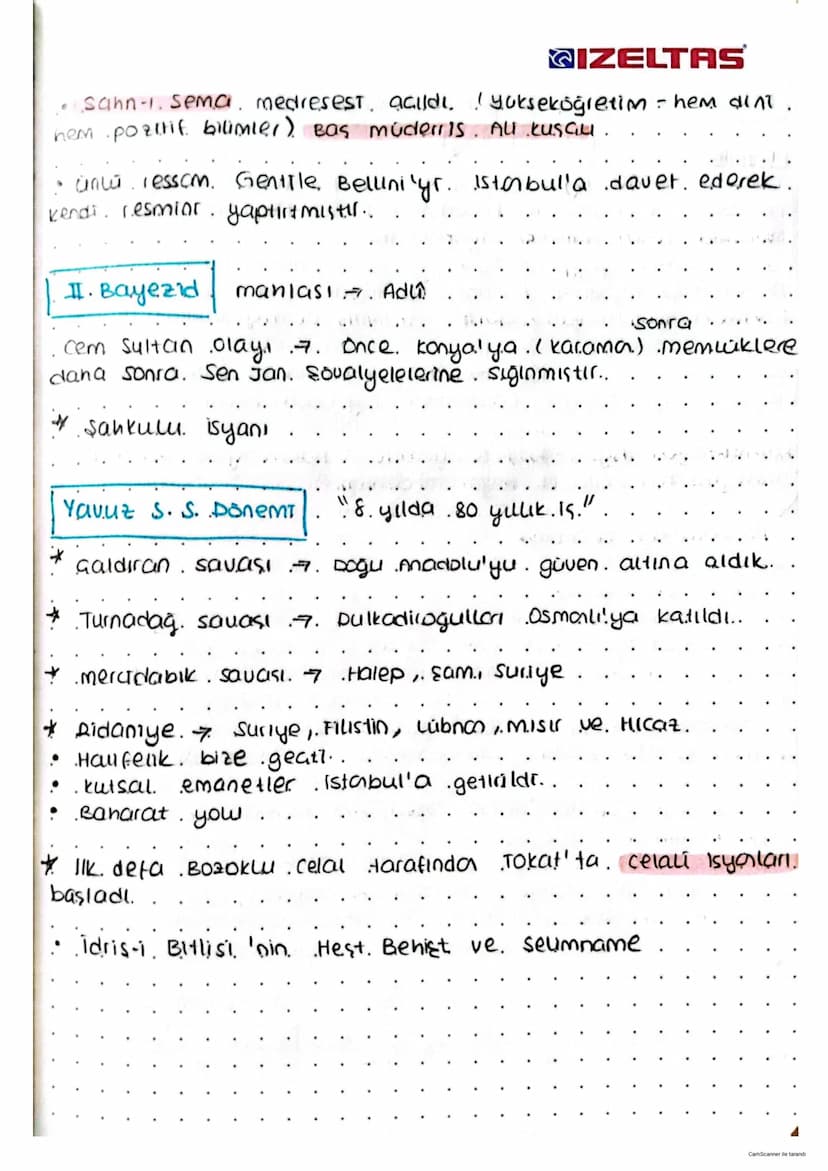 IZELTAS
• Sahn-ı Sema medresesi açıldı. (Yükseköğretim - hem dini
hem pozitif bilimler) Baş müderris Ali Kuşçu
• Ünlü ressam Gentile Bellini'yi İstanbul'a davet ederek
kendi resmini yaptırtmıştır.
II. Bayezid manlası → Adlî
sonra
Cem Sultan olayı → Önce Konya'ya (Karaman) memlüklere
daha sonra Sen Jan Şövalyelelerine sığınmıştır.
* Şahkulu isyanı
Yavuz S. S. Dönemi "8 yılda 80 yıllık iş."
* Çaldıran savaşı → Doğu Anadolu'yu güven altına aldık.
* Turnadağ savaşı → Dulkadiroğulları Osmanlı'ya katıldı.
* mercidabık savaşı → Halep, Şam, Suriye
* Ridaniye → Suriye, Filistin, Lübnan, Mısır ve Hicaz.
• Halifelik bize geçti.
• kutsal emanetler İstanbul'a getirildi.
• Baharat yolu
* İlk defa Bozoklu Celal tarafından Tokat'ta celali isyanları
başladı.
• İdris-i Bitlisi'nin Heşt Behişt ve Selimname
CamScanner ile tarandı